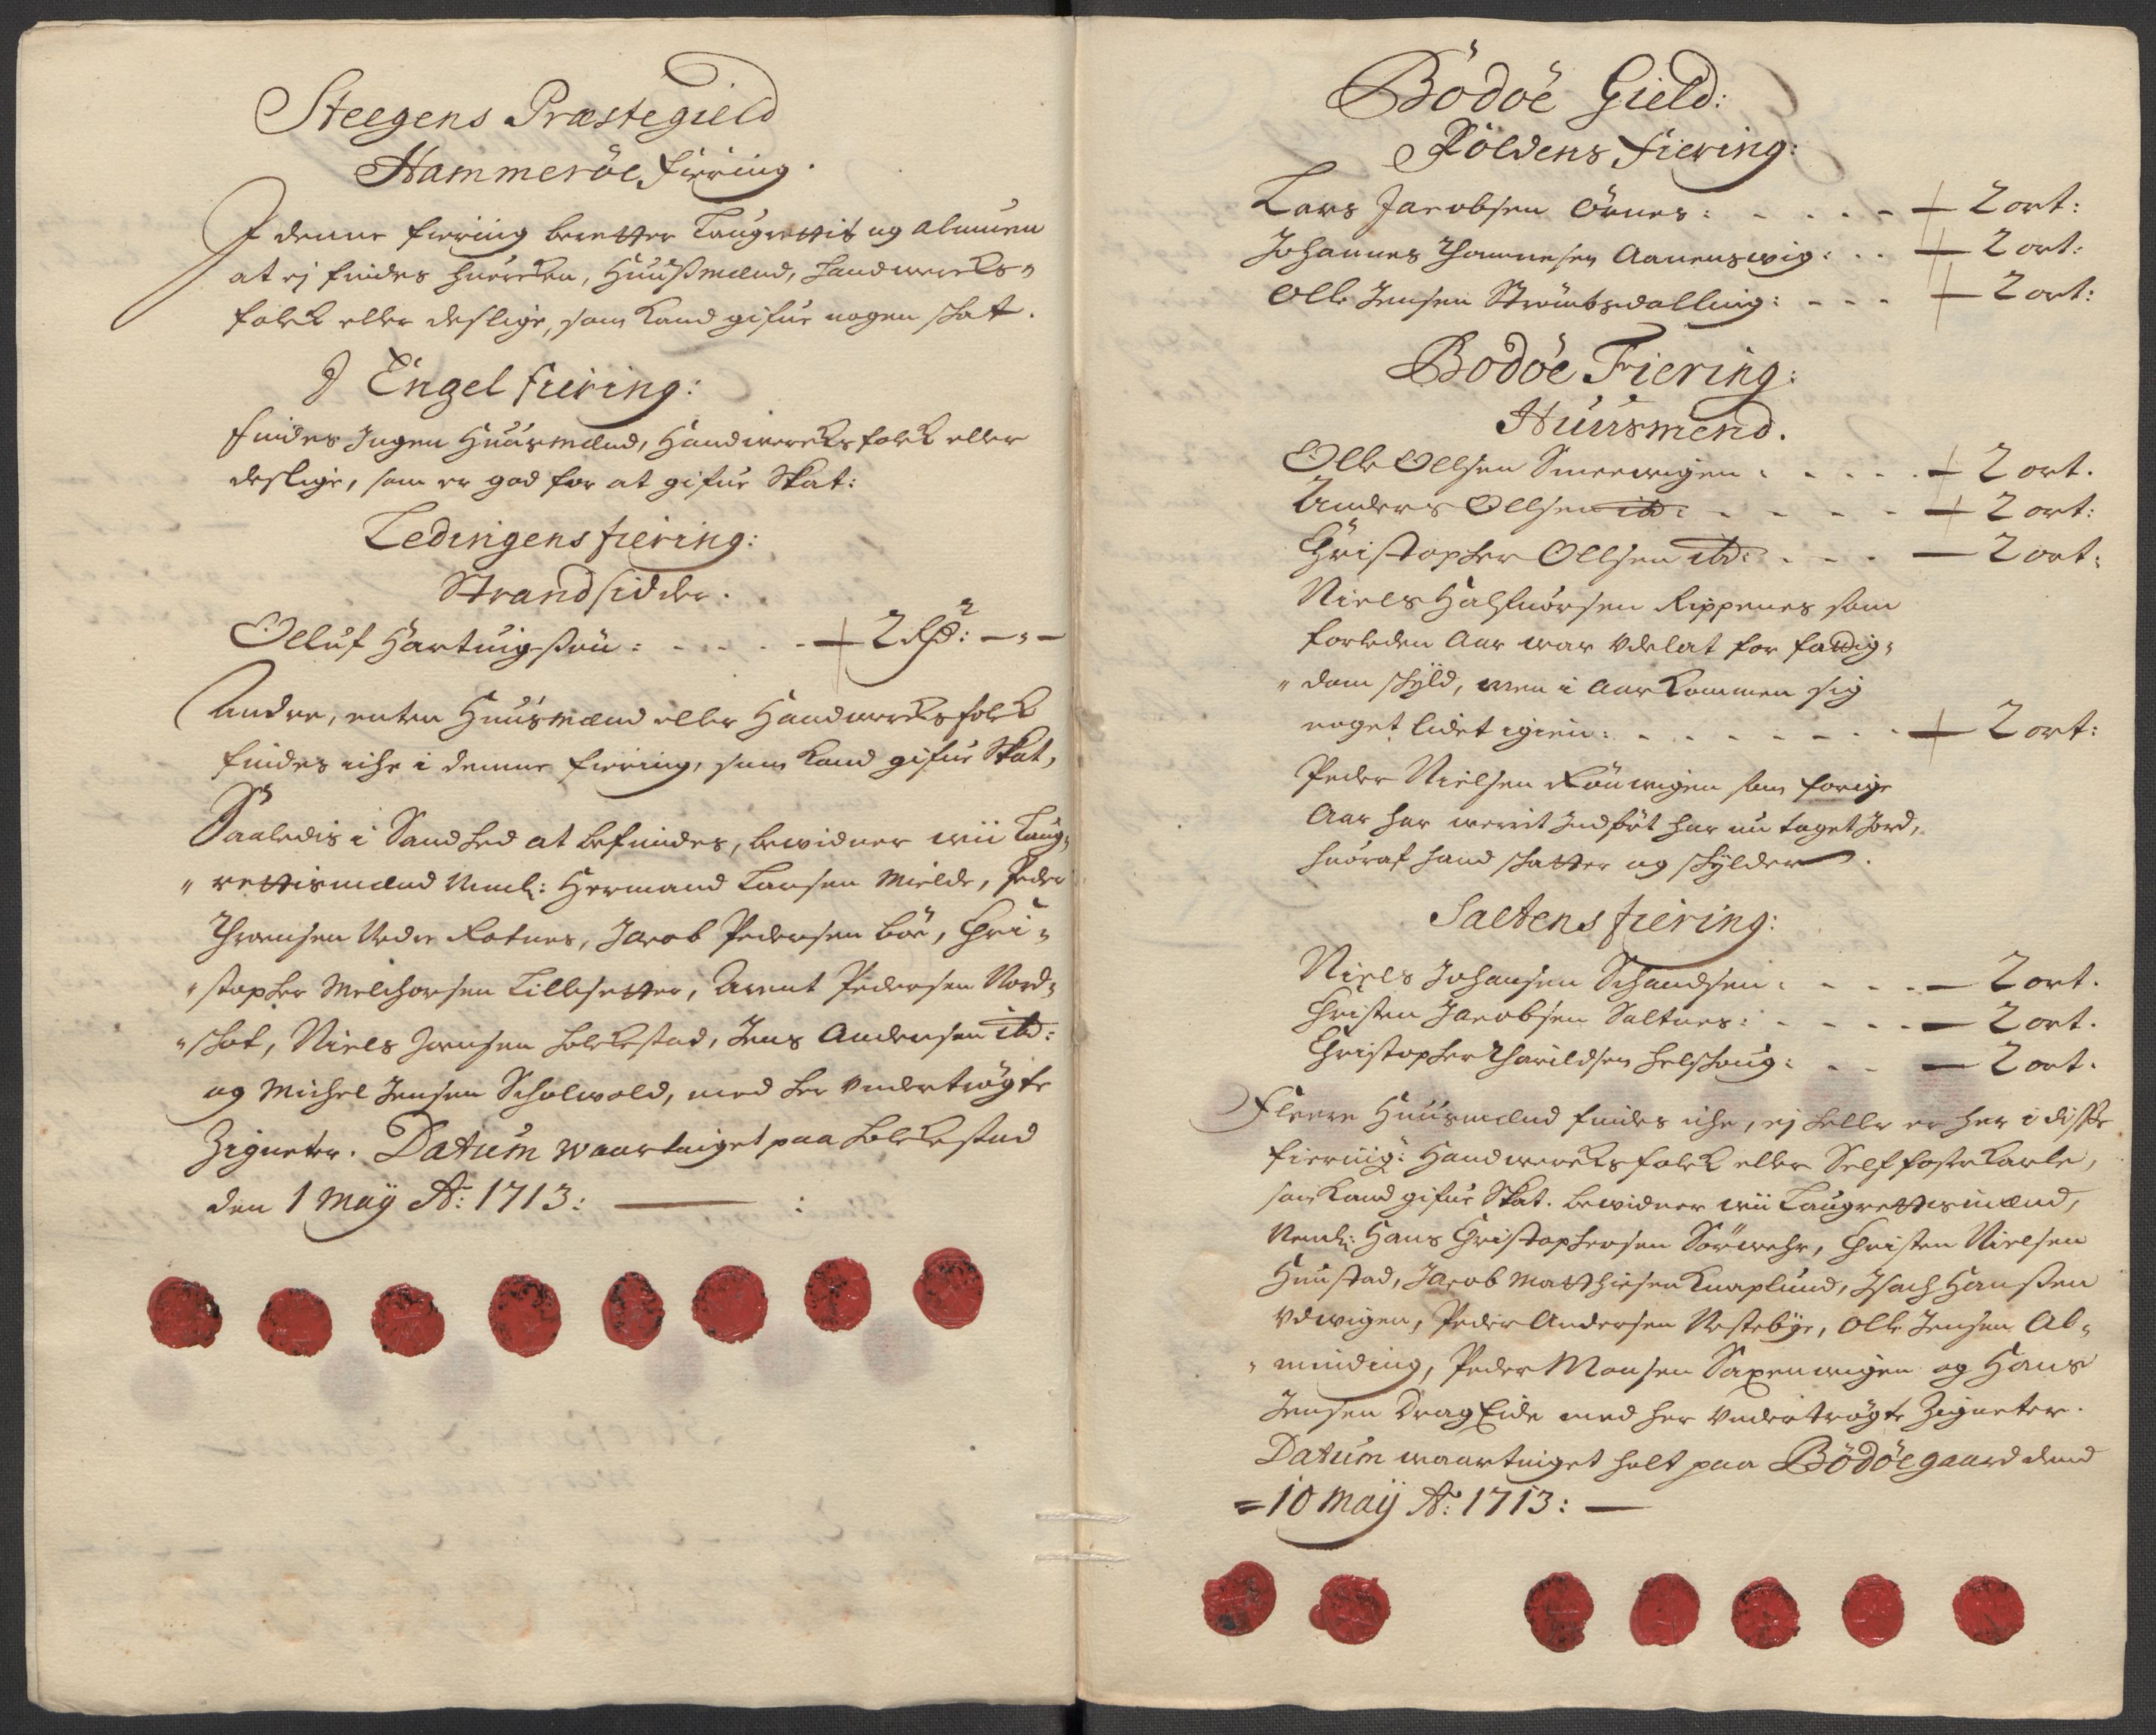 Steegens Præstegield
Hammerøe fiering.
I denne fiering beretter Laugrettit og Almuen
at ej findes huercken, Huusmænd, Handwercks-
folck eller deslige, som kand gifue nogen skat.
J Engel fiering:
findes Ingen Huusmænd, Handwercksfolck eller
deslige, som er god for at gifue Skat:
Ledingens fiering:
Strandsidder.
Olluf Hartuigsøn: - - - - - 2
Andre, enten Huusmænd eller Handwercksfolck
findes iche i denne fiering, som kand gifue Skat,
Saaledis i Sandhed at befindes, bewidner wii Laug-
"rettismænd Neml: Hermand Larsen Mielde, Peder
Thommesen Nedre Rotnes, Jacob Pedersen Böe, Chri-
"stopher Melchorsen Lillesetter, Arent Pedersen Nord-
"skot, Niels Jensen Holckestad, Jens Andersen ibd:
og Michel Jensen Scholwold, med her vndertrögte
Zigneter. Datum waartinget paa Holckestad
den 1 Maÿ Ao: 1713:
Bödöe Gield:
Földens fiering:
Lars Jacobsen Örnes: - - - - - 2 ort:
Johannes Thommesen Aanenswig: - - 2 ort:
Olle Jensen Strömbsdalling: - - - 2 ort:
Bodöe Fiering:
Huusmend.
Olle Ollsen Smeewigen - - - - 2 ort.
Anders Ollsen ibd: - - - - - 2 ort:
Christopher Ollsen ibd: - - - - 2 ort:
Niels Halfuorsen Rippenes som
forleden Aar war vdelat for fattig-
"dom skÿld, men i Aar kommen sig
noget lidet igien: - - - - - - - 2 ort:
Peder Nielsen Rönwigen som forige
Aar har werit Indført har nu taget Jord,
huoraf hand skatter og skÿlder.
Saltens fiering:
Niels Johansen Schandsen: - - - - 2 ort.
Christen Jacobsen Saltnes: - - - - 2 ort.
Christopher Tharildsen Helshoug: - - 2 ort.
Fleere Huusmænd findes iche, ej heller er her i disse
fiering: Handwercksfolck eller Selffosterkarle,
som kand gifue Skat. bewidner wii Laugrettismænd,
Neml: Hans Christophersen Sörwehr, Christen Nielsen
Hunstad, Jacob Matthiesen Knaplund, Isach Hansen
Vdwigen, Peder Andersen Nestebÿe, Olle Jensen Al-
"minding, Peder Monsen Saxenwigen og Hans
Jensen DragEide med her vndertrögte Zigneter.
Datum waartinget holt paa Bödöegaard dend
=10 Maij Ao: 1713: